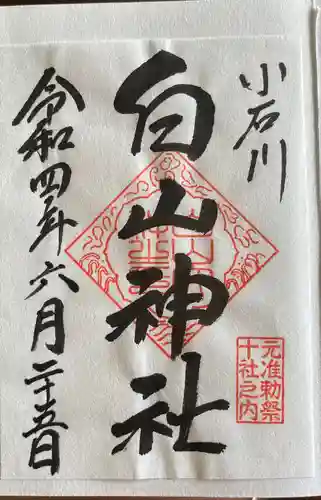 小石川
白山神社
元准勅祭
十社之内
令和四年六月二十五日